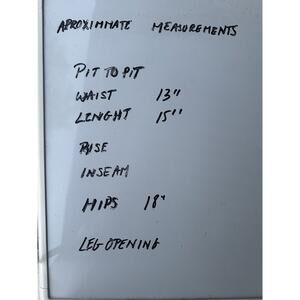 APROXIMMATE MEASUREMENTS
PIT TO PIT
WAIST 13"
LENGHT 15"
RISE
INSEAM
HIPS 18"
LEG OPENING